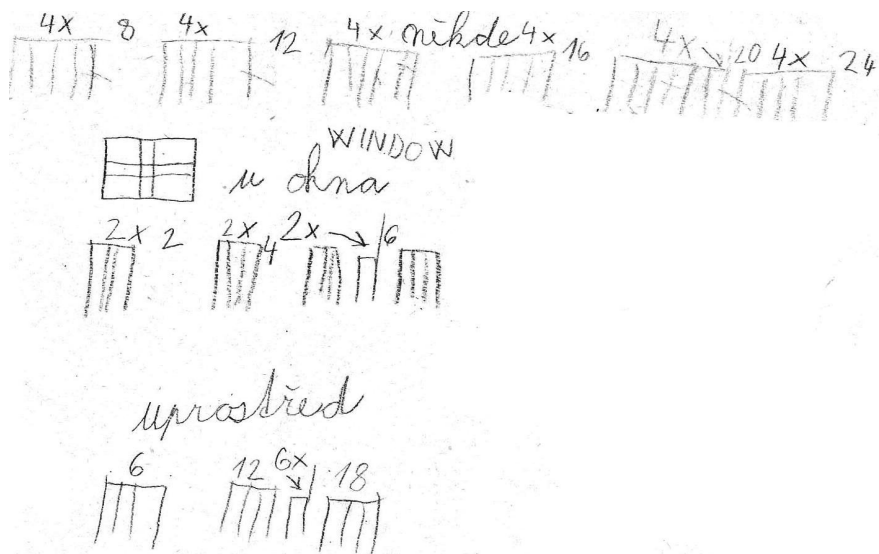 4x 8 4x 12 4x někde 4x 16 4x 20 4x 24
WINDOW
u okna
2x 2 2x 4 2x 6
uprostřed
6 12 6x 18